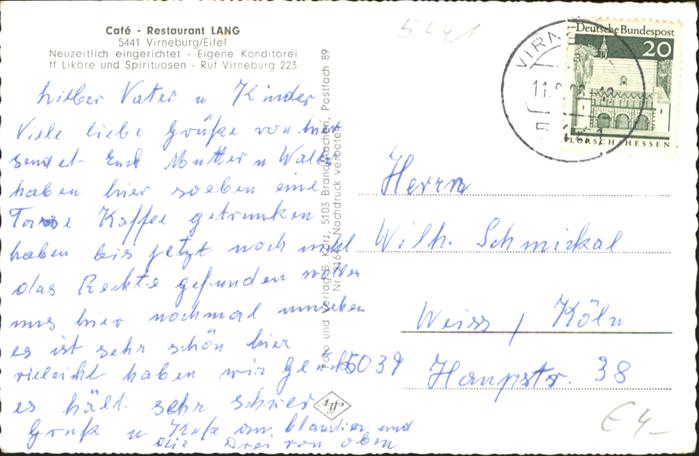 Café - Restaurant LANG
5441 Virneburg/Eifel
Neuzeitlich eingerichtet - Eigene Konditorei
ff Liköre und Spirituosen - Ruf Virneburg 223
5441
Deutsche Bundespost
20
LORSCH/HESSEN
VIRNE
lieber Vater u Kinder
Viele liebe Grüße von hier
sendet Euch Mutter u Walter
haben hier soeben eine
Tasse Kaffee getrunken
haben bis jetzt noch nicht
das Rechte gefunden wollen
uns hier nochmal umsehen
es ist sehr schön hier
vieleicht haben wir Glück
es hält sehr schwer
Gruß u Kuß an Claudia und
die Drei von oben
Foto und Verlag B. Kürz, 5103 Brand/Aachen, Postfach 89
Nachdruck verboten
Agfa
Herrn
Wilh. Schmickal
Weiss, Köln
5039 Haupstr. 38
€ 4-